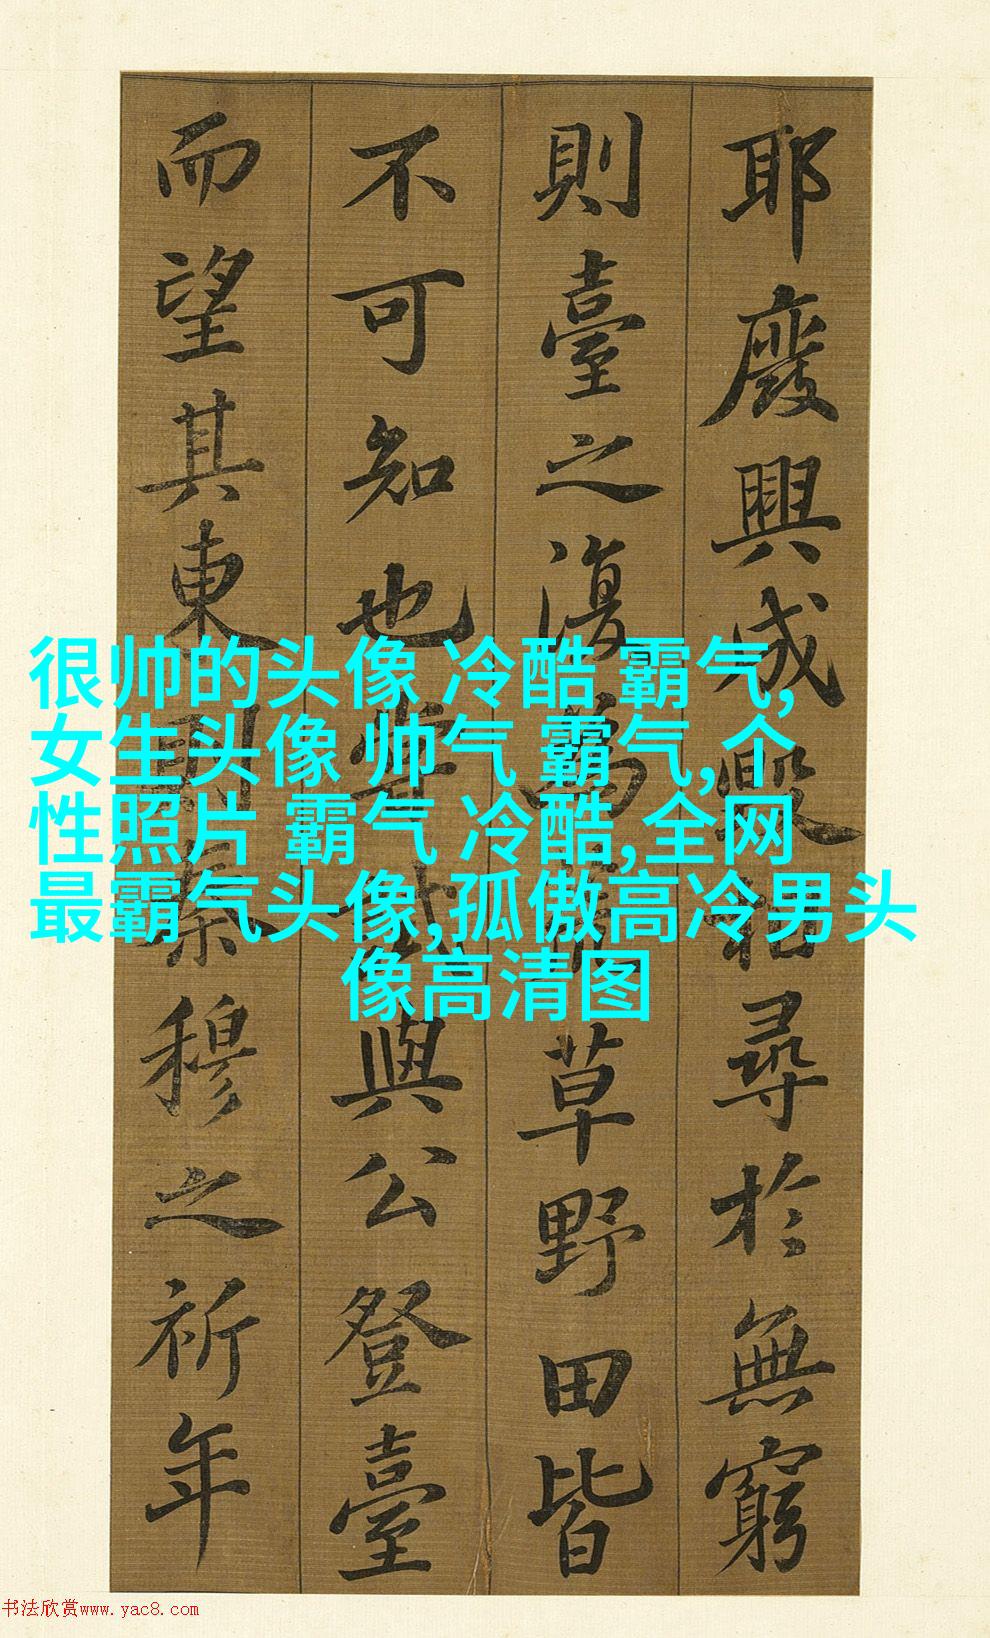 耶廢興成毀相尋於無窮
則臺之復為草野田皆
不可知也嘗與公登臺
而望其東則秦穆之祈年
很帅的头像 冷酷 霸气,
女生头像 帅气 霸气,个
性照片 霸气 冷酷,全网
最霸气头像,孤傲高冷男头
像高清图
书法欣赏www.yac8.com